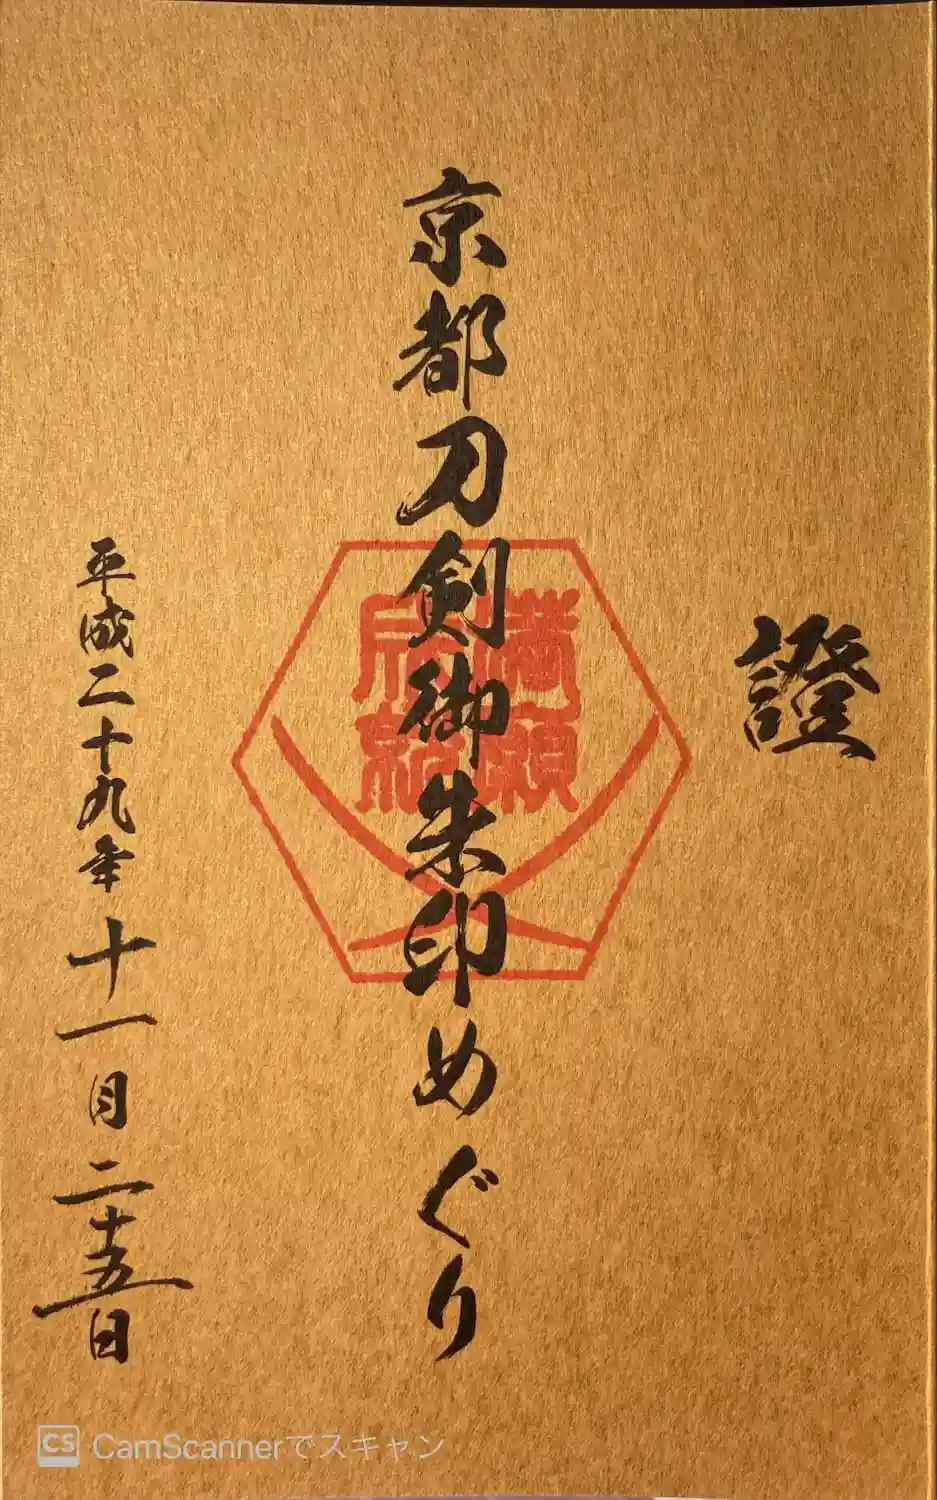 證
京都刀剣御朱印めぐり
満願
成就
平成二十九年十一月二十五日
CS CamScannerでスキャン